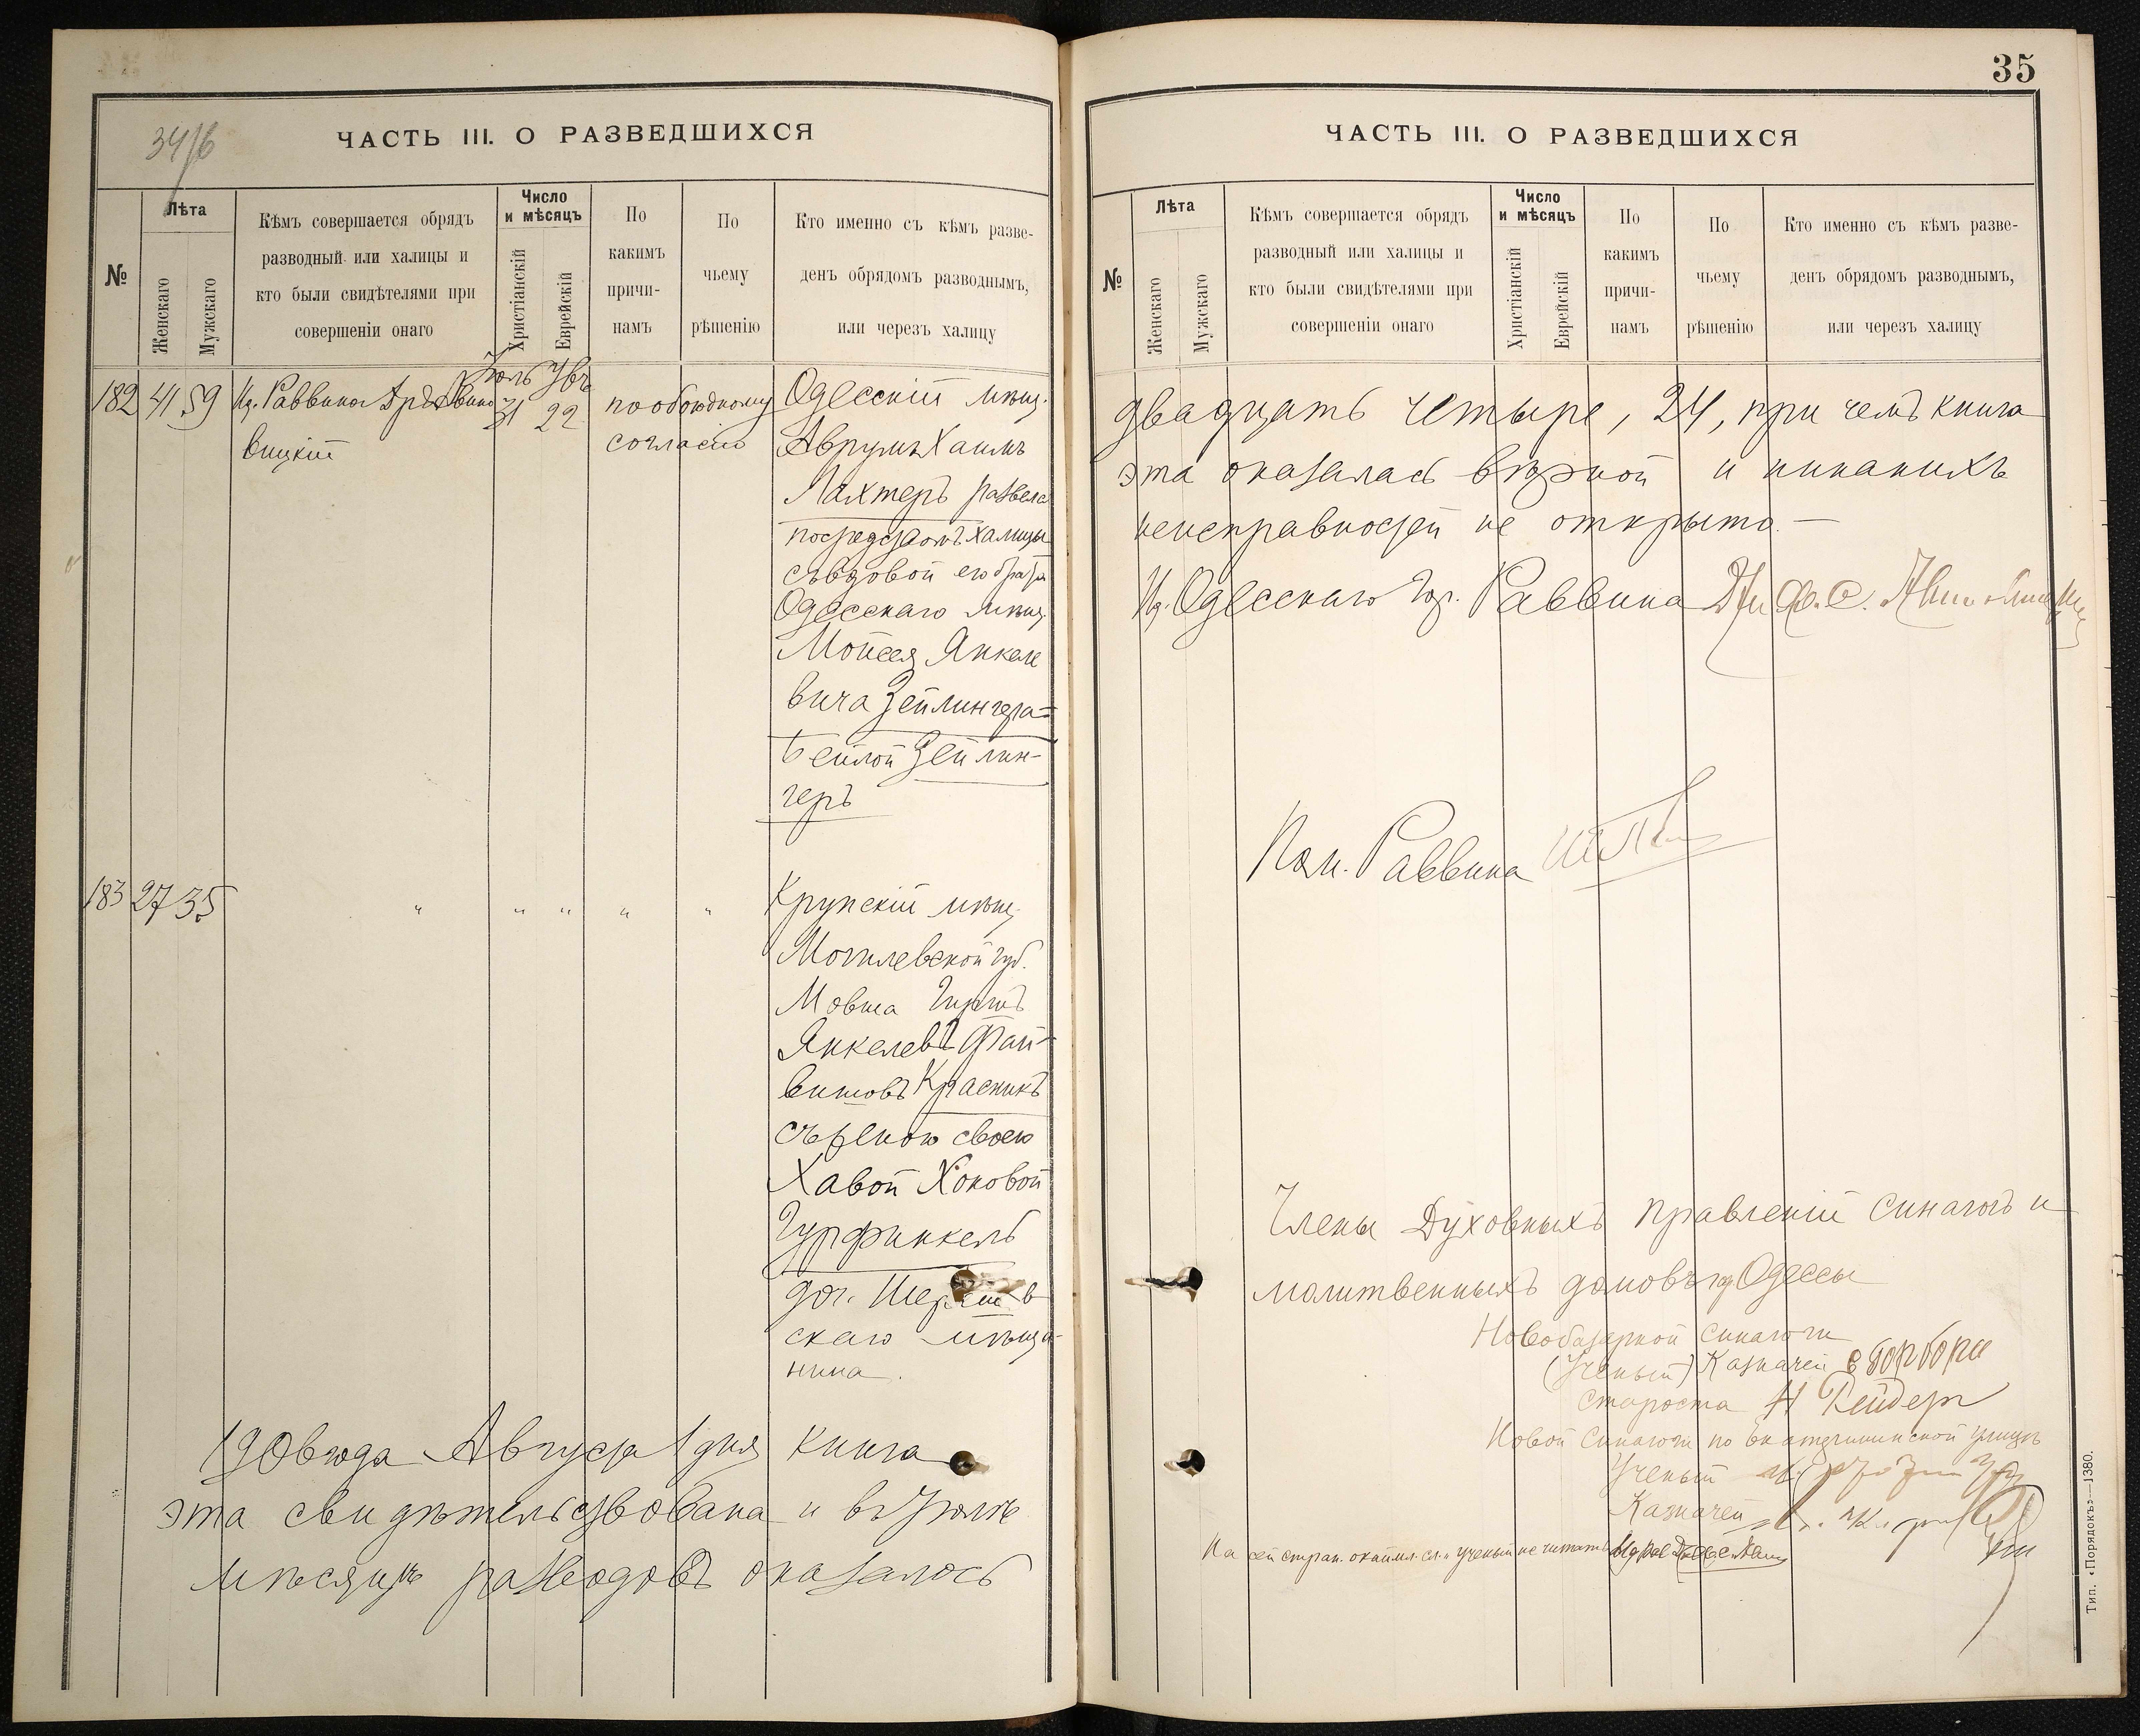 34/б
ЧАСТЬ III. О РАЗВЕДШИХСЯ
№
Лѣта
Женскаго
Мужскаго
Кѣмъ совершается обрядъ
разводный или халицы и
кто были свидѣтелями при
совершеніи онаго
Число
и мѣсяцъ
Христіанскій
Еврейскій
По
какимъ
причи-
намъ
По
чьему
рѣшенію
Кто именно съ кѣмъ разве-
денъ обрядомъ разводнымъ,
или черезъ халицу
Іюль
182 41 59 31 22 по обоюдному Одесскій мѣщ.
вицкій согласію Аврумъ Хаимъ
Лахтеръ
посредствомъ халицы
съ вдовой его брата
Одесскаго мѣщ.
Мойсея Янкеле
вича Зейлингера
Бейлой Зейлин-
геръ
183 27 35 " " " " " Крупскій мѣщ.
Могилевской губ.
Мовша
Янкелевъ Фай-
вишовъ Красникъ
съ женою своею
Хавой
Гурфинкель
доч.
скаго мѣща-
нина.
года Августа 1 дня книга
эта свидѣтельствована и въ Іюлѣ
мѣсяцѣ разводовъ оказалось
35
ЧАСТЬ III. О РАЗВЕДШИХСЯ
№
Лѣта
Женскаго
Мужскаго
Кѣмъ совершается обрядъ
разводный или халицы и
кто были свидѣтелями при
совершеніи онаго
Число
и мѣсяцъ
Христіанскій
Еврейскій
По
какимъ
причи-
намъ
По
чьему
рѣшенію
Кто именно съ кѣмъ разве-
денъ обрядомъ разводнымъ,
или черезъ халицу
двадцать четыре, 24, при чемъ книга
эта оказалась вѣрной и никакихъ
неисправностей не открыто. —
И.д. Одесскаго Гор. Раввина
Пом. Раввина
Члены Духовныхъ Правленій синагогъ и
молитвенныхъ домовъ гор. Одессы
Новобазарной синагоги
(Ученый) Казначей
Староста
Новой Синагоги по Екатерининской улицѣ
Ученый
Казначей
На сей стран. ученый не читать
Тип. «Порядокъ»—1380.